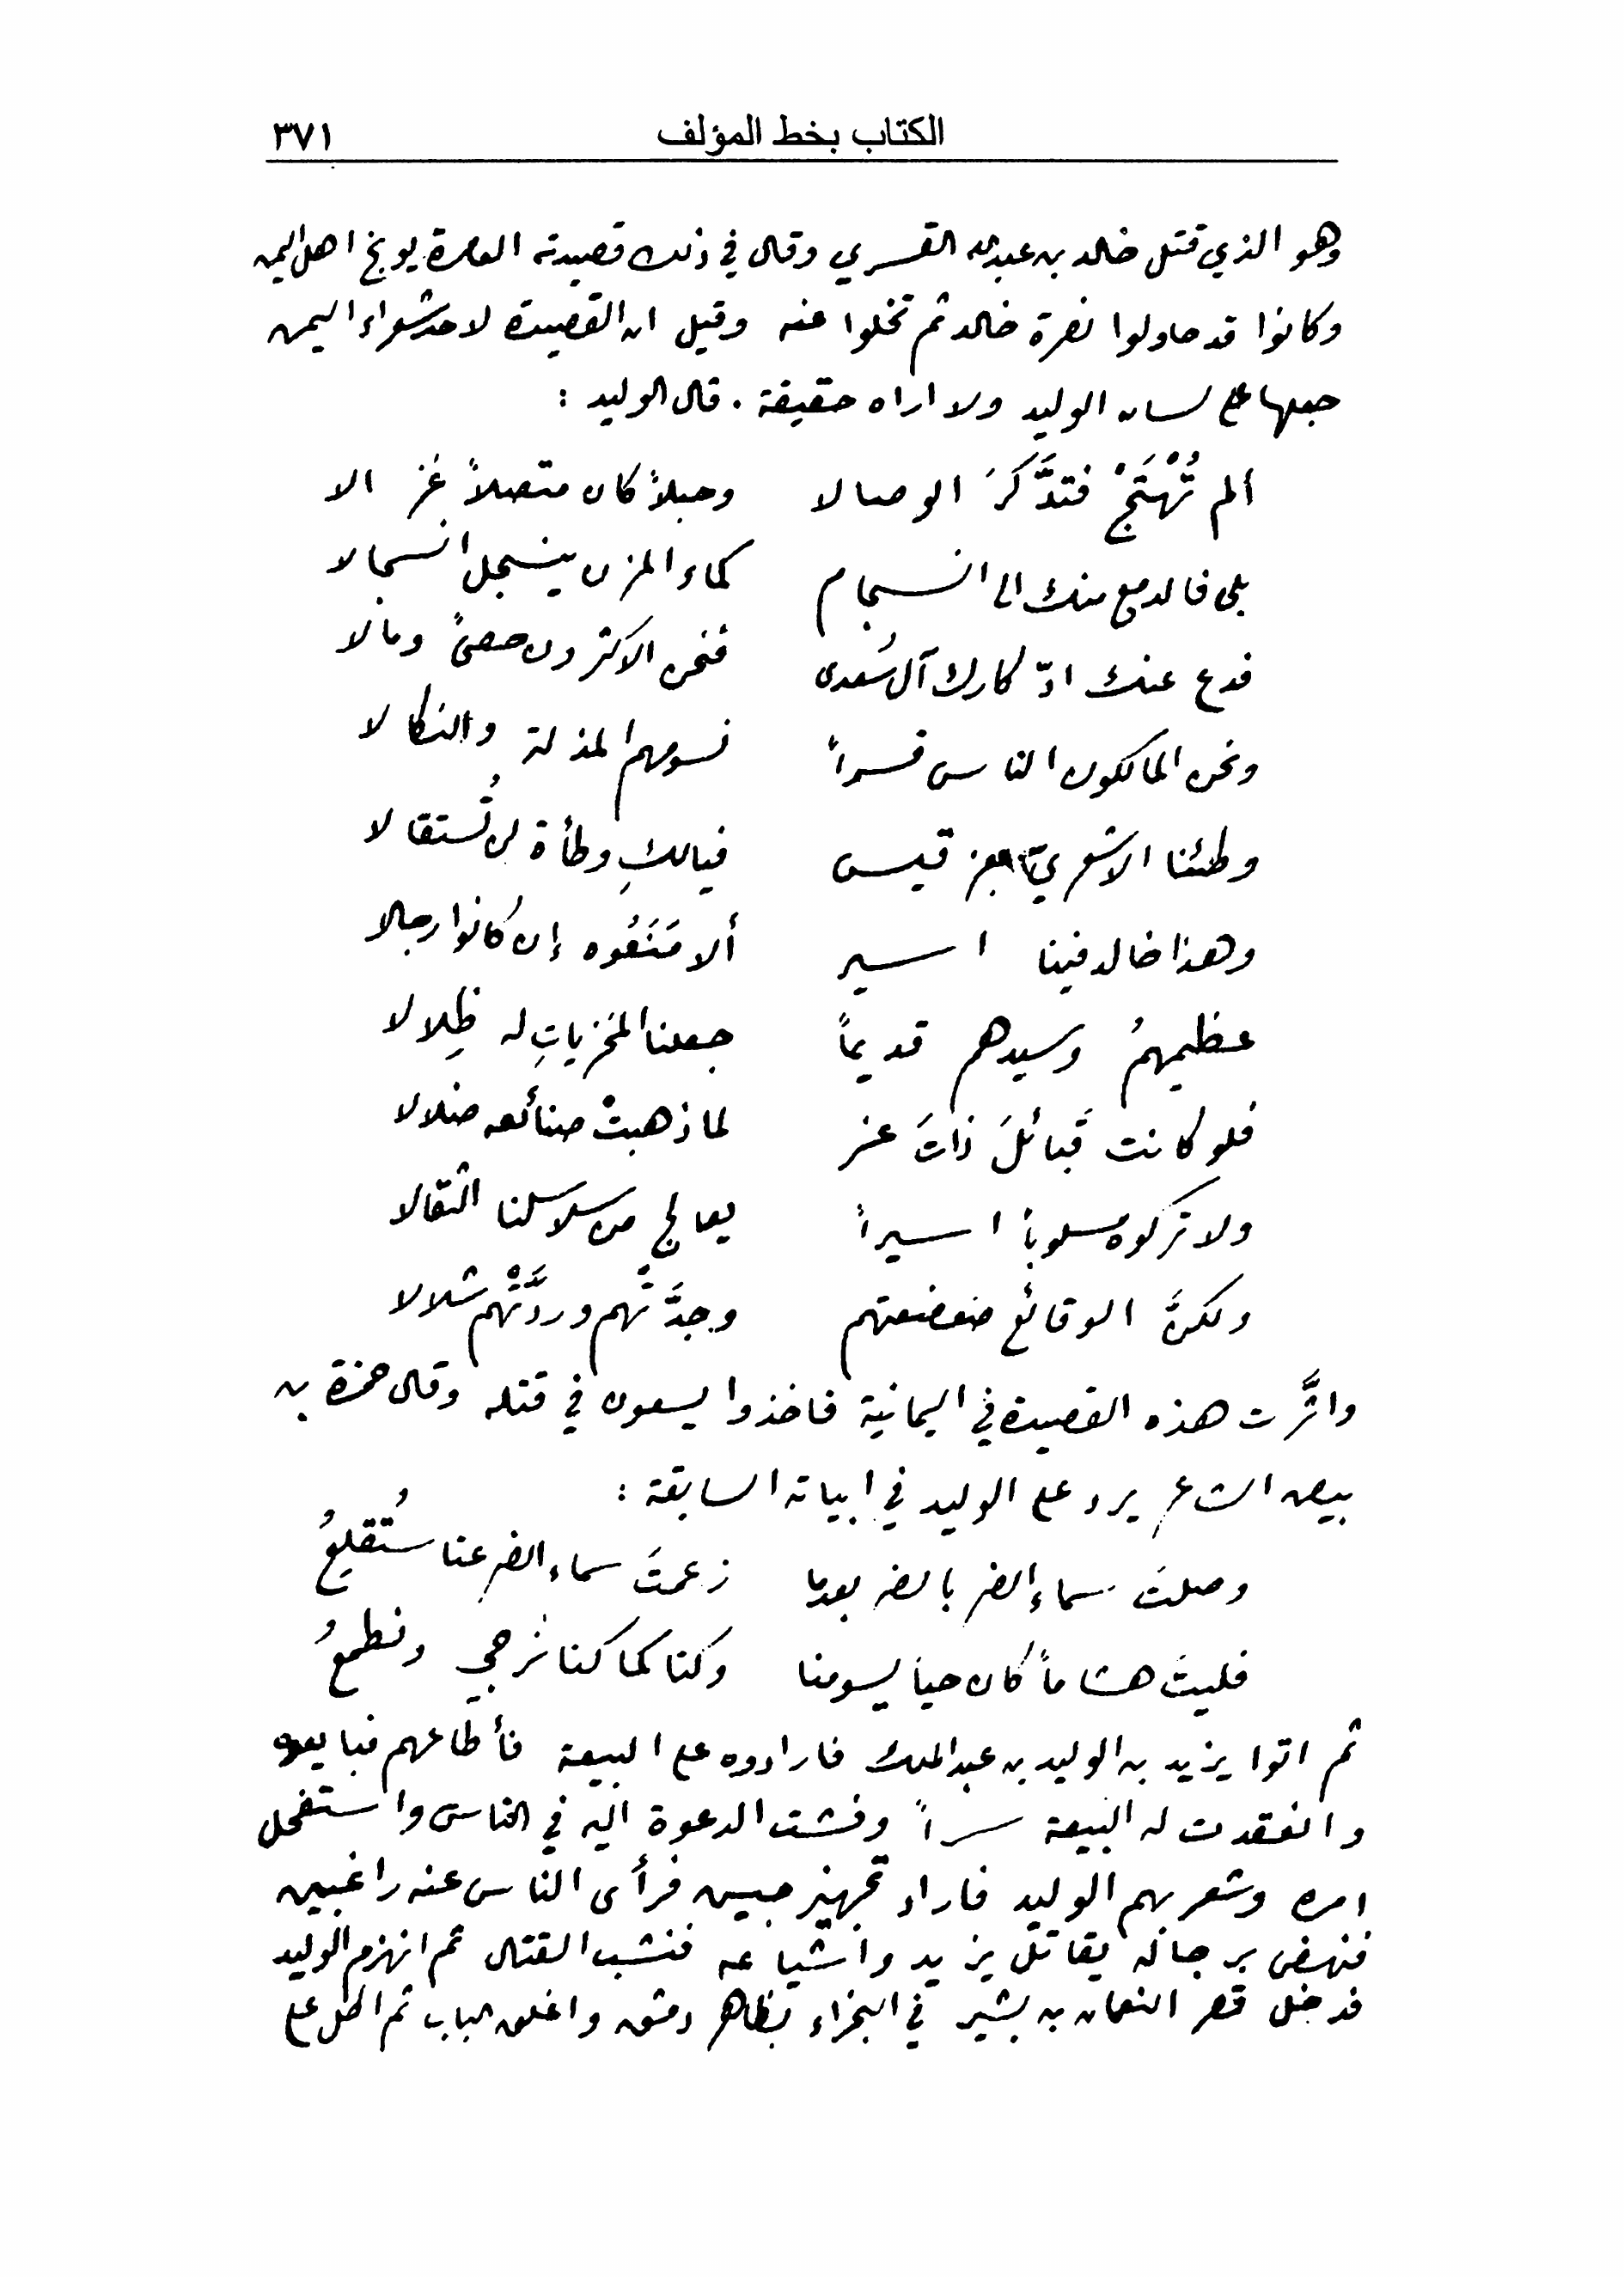 الكتاب بخط المؤلف ٣٧١
وهو الذي قتل خالد بن عبدالله القسري وقال في ذلك قصيدته العامرة يوبخ اهل اليمن
وكانوا قد حاولوا نصرة خالد ثم تخلوا عنه وقيل ان القصيدة لاحد شعراء اليمن
جعلها على لسان الوليد ولا اراه حقيقة . قال الوليد :
ألم تُهْتَجْ فتدَّكَرَ الوصالا وحبلاً كان متصلاً فزالا
بلى فالدمع منك الى انسجام كماء المزن ينسجل انسجالا
فدع عنك ادّكارك آل سُعدى فنحن الاكثرون حصىً ومالا
ونحن المالكون الناس قسراً نسومهم المذلة والنكالا
وطئنا الاشعريَّ بعز قيس فيالكِ وطأة لن تُستقالا
وهذا خالد فينا اسير ألا مَنَعُوه إن كانوا رجالا
عظيمهمُ وسيدهم قديماً جعلنا المخزياتِ له ظِلالا
فلو كانت قَبائلَ ذاتَ عز لما ذهبتْ صنائعه ضلالا
ولا تركوه مسلوباً اسيراً يعالج من سلاسلنا الثقالا
ولكنَّ الوقائع ضعضعتهم وجدَّتهم وردَّتْهم شلالا
واثَّرت هذه القصيدة في اليمانية فاخذوا يسعون في قتله وقال حمزة بن
بيض الشاعر يرد على الوليد في ابياته السابقة :
وصلتَ سماء الضر بالضر بعدما زعمتَ سماء الضر عنا ستُقلِعُ
فليتَ هشاماً كان حياً يسومنا وكنا كما كنا نُرجي ونطمعُ
ثم اتوا يزيد بن الوليد بن عبدالملك فارادوه على البيعة فأطاعهم فبايعوه
وانعقدت له البيعة سراً وفشت الدعوة اليه في الناس واستفحل
امره وشعر بهم الوليد فاراد تجهيز جيش فرأى الناس عنه راغبين
فنهض برجاله يقاتل يزيد واشياعه فنشب القتال ثم انهزم الوليد
فدخل قصر النعمان بن بشير في البخراء بظاهر دمشق واغلق الباب ثم اطل على